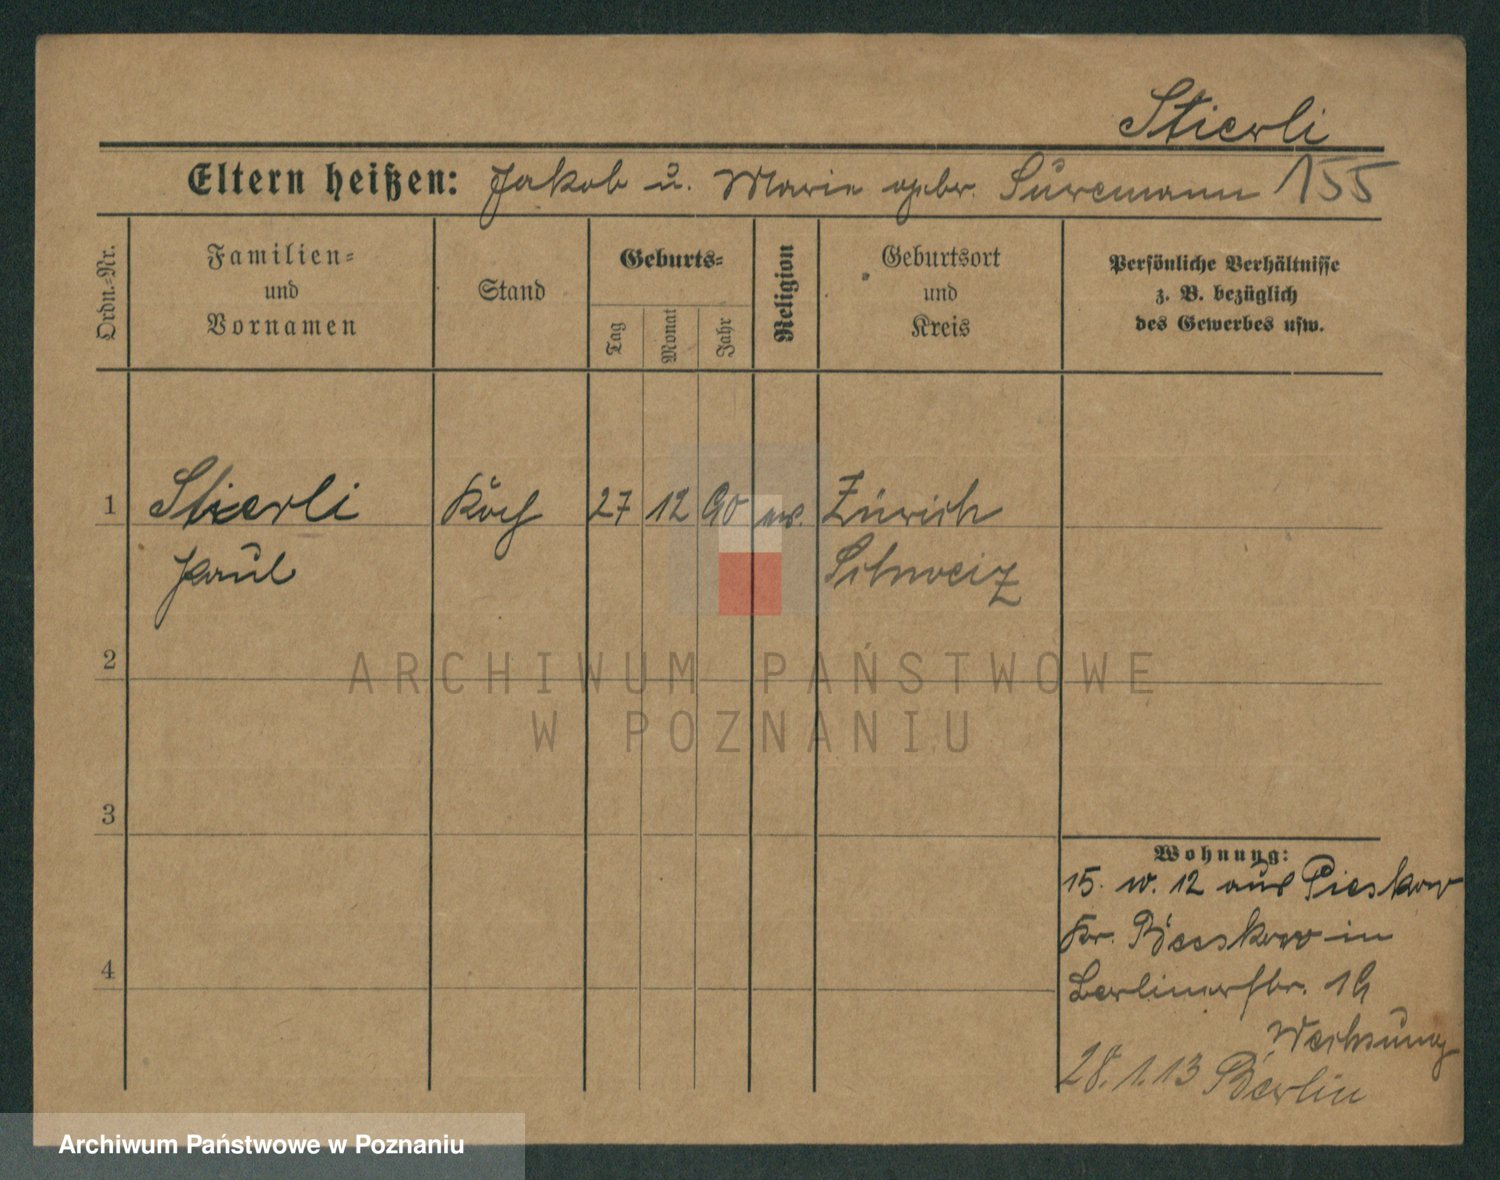 Stierli
Eltern heißen: Jakob u. Marie gebr. Suremann 155
Ordn.-Nr.
Familien-
und
Vornamen
Stand
Geburts-
Tag
Monat
Jahr
Religion
Geburtsort
und
Kreis
Persönliche Verhältnisse
z. B. bezüglich
des Gewerbes usw.
1 Stierli Koch 27 12 90 Zürich
Paul Schweiz
2
ARCHIWUM PAŃSTWOWE
W POZNANIU
3
Wohnung:
15. 12 aus Pieskow
Kr. Beeskow in
4
Berlinerstr. 19
28.1.13 Berlin
Archiwum Państwowe w Poznaniu